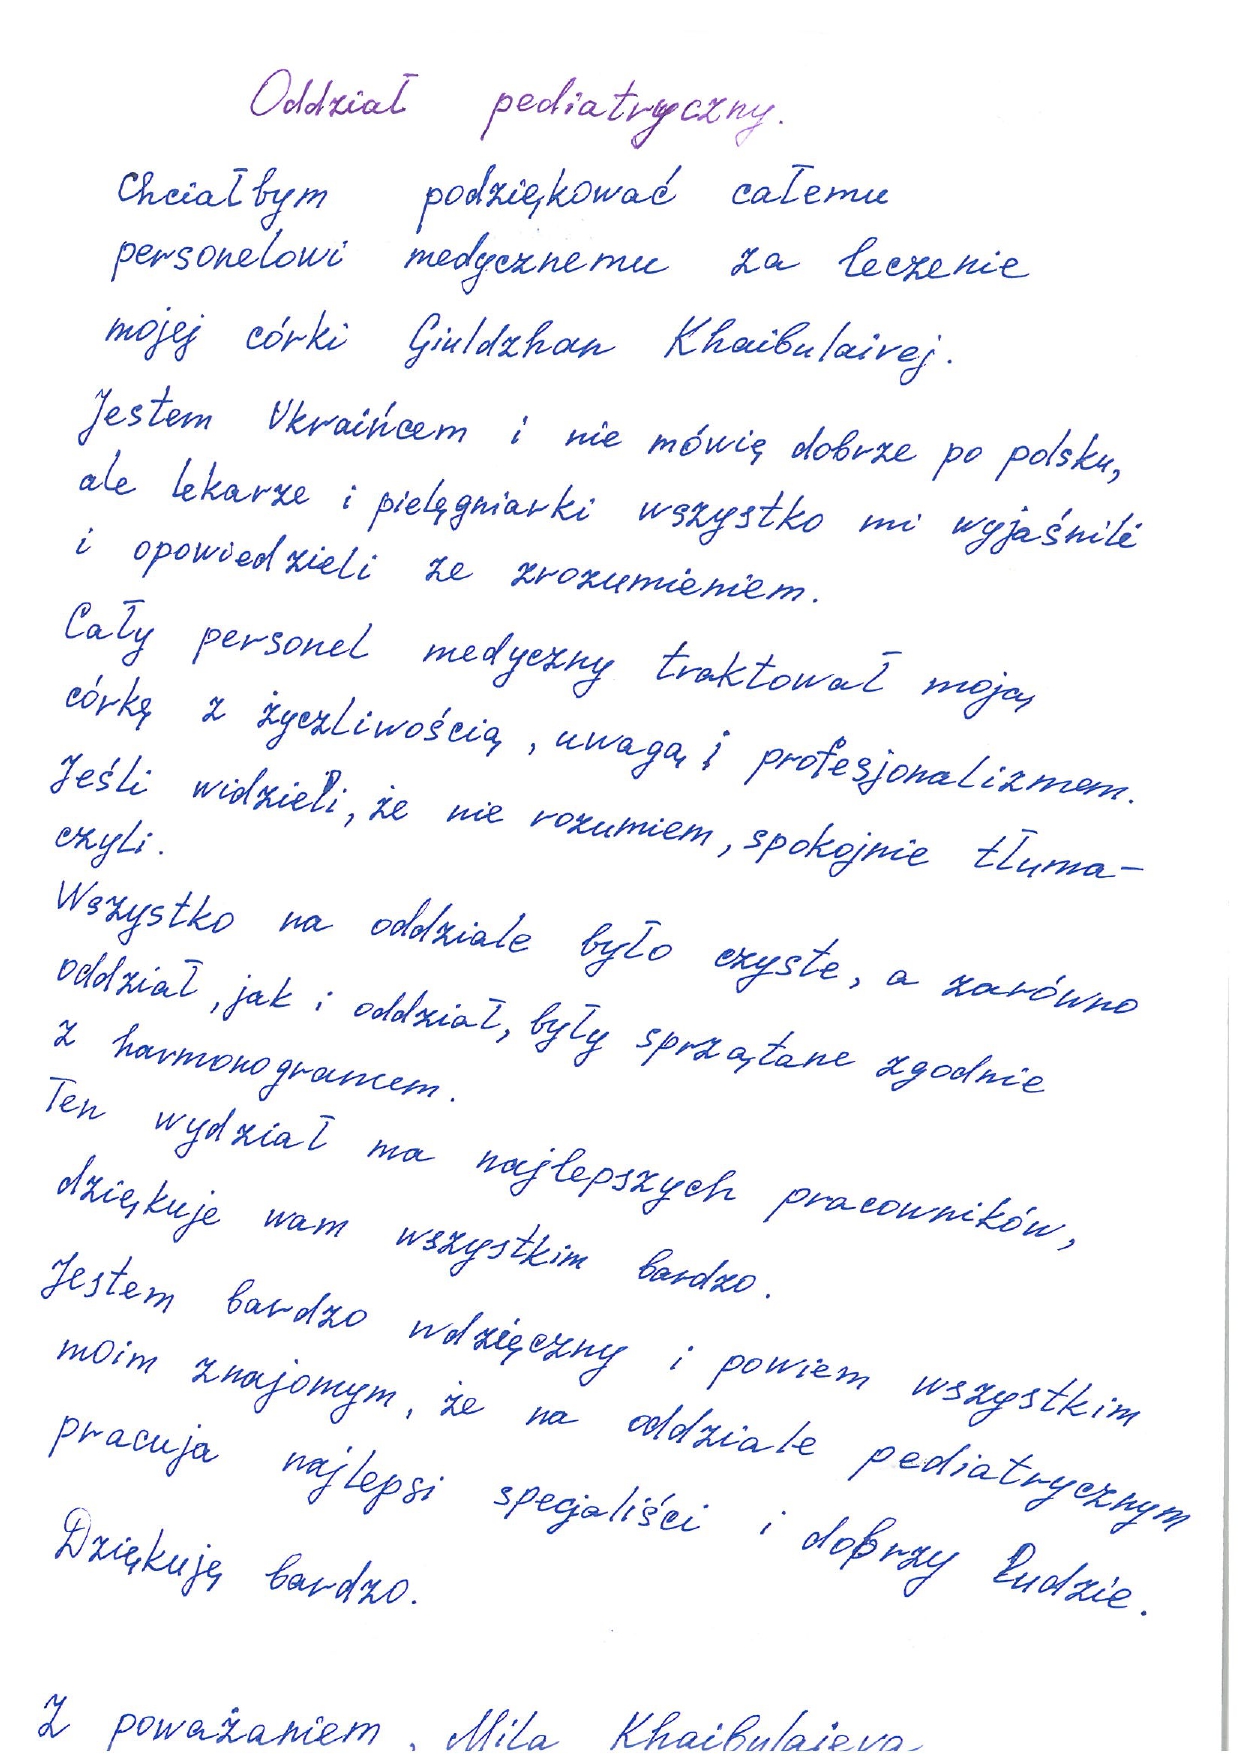 Oddział pediatryczny.
Chciałbym podziękować całemu
personelowi medycznemu za leczenie
mojej córki Giuldzhan Khaibulairej.
Jestem Ukraińcem i nie mówię dobrze po polsku,
ale lekarze i pielęgniarki wszystko mi wyjaśnili
i opowiedzieli ze zrozumieniem.
Cały personel medyczny traktował moją
córkę z życzliwością, uwagą i profesjonalizmem.
Jeśli widzieli, że nie rozumiem, spokojnie tłuma-
czyli.
Wszystko na oddziale było czyste, a zarówno
oddział, jak i oddział, były sprzątane zgodnie
z harmonogramem.
Ten wydział ma najlepszych pracowników,
dziękuje wam wszystkim bardzo.
Jestem bardzo wdzięczny i powiem wszystkim
moim znajomym, że na oddziale pediatrycznym
pracuja najlepsi specjaliści i dobrzy ludzie.
Dziękuję bardzo.
Z poważaniem, Mila Khaibulaieva